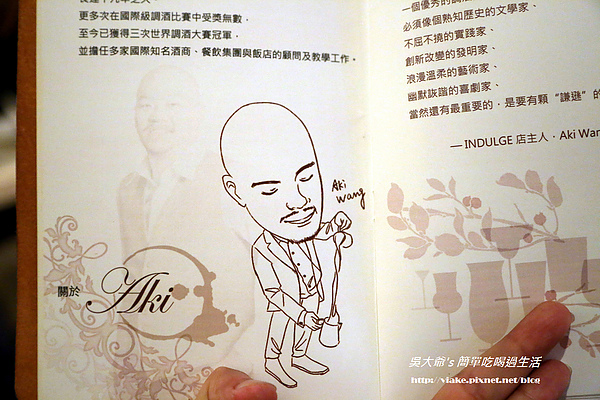 更多次在國際級調酒比賽中受獎無數，
至今已獲得三次世界調酒大賽冠軍，
並擔任多家國際知名酒商、餐飲集團與飯店的顧問及教學工作。
Aki
Wang
關於
Aki
一個優秀的調酒
必須像個熟知歷史的文學家、
不屈不撓的實踐家、
創新改變的發明家、
浪漫溫柔的藝術家、
幽默詼諧的喜劇家、
當然還有最重要的，是要有顆“謙遜”的
— INDULGE 店主人．Aki Wan
吳大爺's 簡單吃喝過生活
http://vlake.pixnet.net/blog